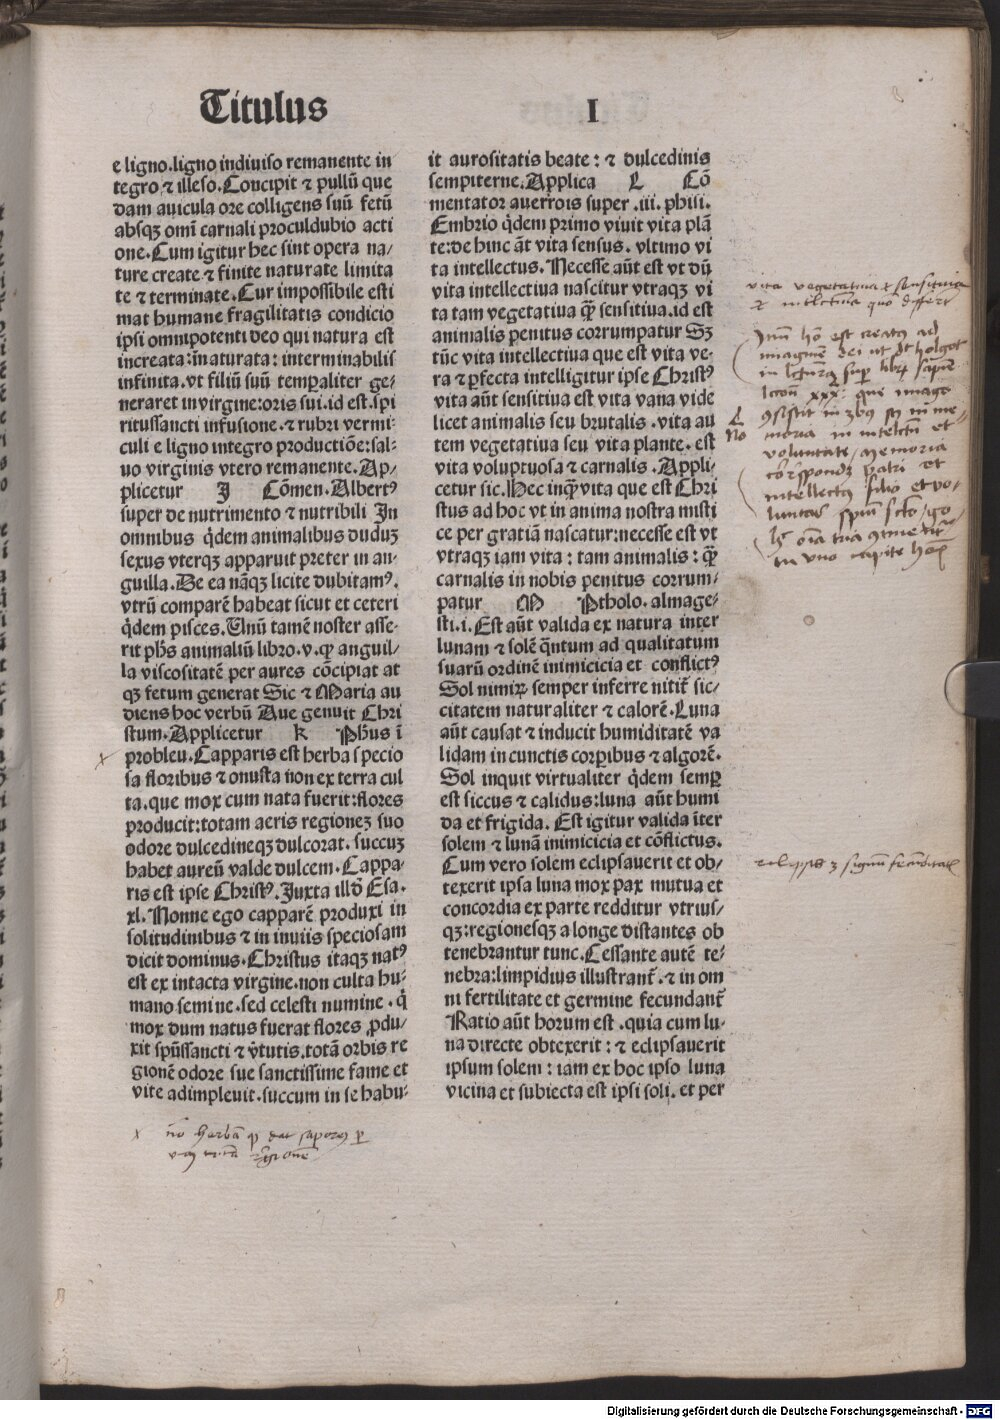 Titulus I
e ligno.ligno indiuiso remanente in
tegro ⁊ illeso.Concipit ⁊ pullū que
dam auicula ore colligens suū fetū
absqꝫ omī carnali proculdubio acti
one.Cum igitur hec sint opera na/
ture create ⁊ finite naturate limita
te ⁊ terminate.Cur impossibile esti
mat humane fragilitatis condicio
ipsi omnipotenti deo qui natura est
increata:īnaturata: interminabilis
infinita.vt filiū suū temꝑaliter ge⸗
neraret in virgine:oris sui.id est.spi
ritussancti infusione.⁊ rubri vermi⸗
culi e ligno integro productiōe:sal⸗
uo virginis vtero remanente.Ap/
plicetur J Cōmen.Albertꝰ
super de nutrimento ⁊ nutribili In
omnibus q̇dem animalibus duduꝫ
sexus vterqꝫ apparuit preter in an⸗
guilla.De ea nāqꝫ licite dubitamꝰ.
vtrū comparē habeat sicut et ceteri
q̇dem pisces.Unū tamē noster asse⸗
rit pħs animaliū libro.v.ꝙ anguil/
la viscositatē per aures cōcipiat at
qꝫ fetum generat Sic ⁊ Maria au
diens hoc verbū Aue genuit Chri
stum.Applicetur k Pħus ī
probleu.Capparis est herba specio
sa floribus ⁊ onusta non ex terra cul
ta.que mox cum nata fuerit:flores
producit:totam aeris regioneꝫ suo
odore dulcedineqꝫ dulcorat.succuꝫ
habet aureū valde dulcem.Cappa⸗
ris est ipse Christꝰ.Juxta illđ Esa.
xl.Nonne ego capparē produxi in
solitudinibus ⁊ in inuiis speciosam
dicit dominus.Christus itaqꝫ natꝰ
est ex intacta virgine.non culta hu⸗
mano semine.sed celesti numine.q̇
mox dum natus fuerat flores ꝓdu/
xit spūssancti ⁊ v̄tutis.totā orbis re
gionē odore sue sanctissime fame et
vite adimpleuit.succum in se habu⸗
it aurositatis beate: ⁊ dulcedinis
sempiterne.Applica L Cō
mentator auerrois super .iii. phisi.
Embrio q̇dem primo viuit vita plā
te:de hinc aūt vita sensus. vltimo vi
ta intellectus.Necesse aūt est vt dū
vita intellectiua nascitur vtraqꝫ vi
ta tam vegetatiua ꝙ̄ sensitiua.id est
animalis penitus corrumpatur Sꝫ
tūc vita intellectiua que est vita ve⸗
ra ⁊ ꝑfecta intelligitur ipse Christꝰ
vita aūt sensitiua est vita vana vide
licet animalis seu brutalis.vita au
tem vegetatiua seu vita plante. est
vita voluptuosa ⁊ carnalis.Appli⸗
cetur sic.Hec inq̄ vita que est Chri
stus ad hoc vt in anima nostra misti
ce per gratiā nascatur:necesse est vt
vtraqꝫ iam vita: tam animalis: ꝙ̄
carnalis in nobis penitus corrum⸗
patur M Ptholo. almage⸗
sti.i.Est aūt valida ex natura inter
lunam ⁊ solē q̄ntum ad qualitatum
suarū ordinē inimicicia et conflictꝰ
Sol nimiꝝ semper inferre nitit̄ sic⸗
citatem naturaliter ⁊ calorē.Luna
aūt causat ⁊ inducit humiditatē va
lidam in cunctis corꝑibus ⁊ algorē.
Sol inquit virtualiter q̇dem semꝑ
est siccus ⁊ calidus:luna aūt humi
da et frigida. Est igitur valida īter
solem ⁊ lunā inimicicia et cōflictus.
Cum vero solem eclipsauerit et ob⸗
texerit ipsa luna mox pax mutua et
concordia ex parte redditur vtrius⸗
qꝫ:regionesqꝫ a longe distantes ob
tenebrantur tunc.Cessante autē te⸗
nebra:limpidius illustrant̄.⁊ in om
ni fertilitate et germine fecundant̄
Ratio aūt horum est.quia cum lu⸗
na directe obtexerit: ⁊ eclipsauerit
ipsum solem: iam ex hoc ipso luna
vicina et subiecta est ipsi soli. et per
vita vegetatiua ⁊ sensitiua
Jmū hō est creatus ad
imaginē dei ut
in
No
memoria in intellectu et
voluntate / memoria
correspondꝫ patri et
intellectus filio et vo⸗
luntas
in vno capite
x
x nō herbā
Digitalisierung gefördert durch die Deutsche Forschungsgemeinschaft - DFG